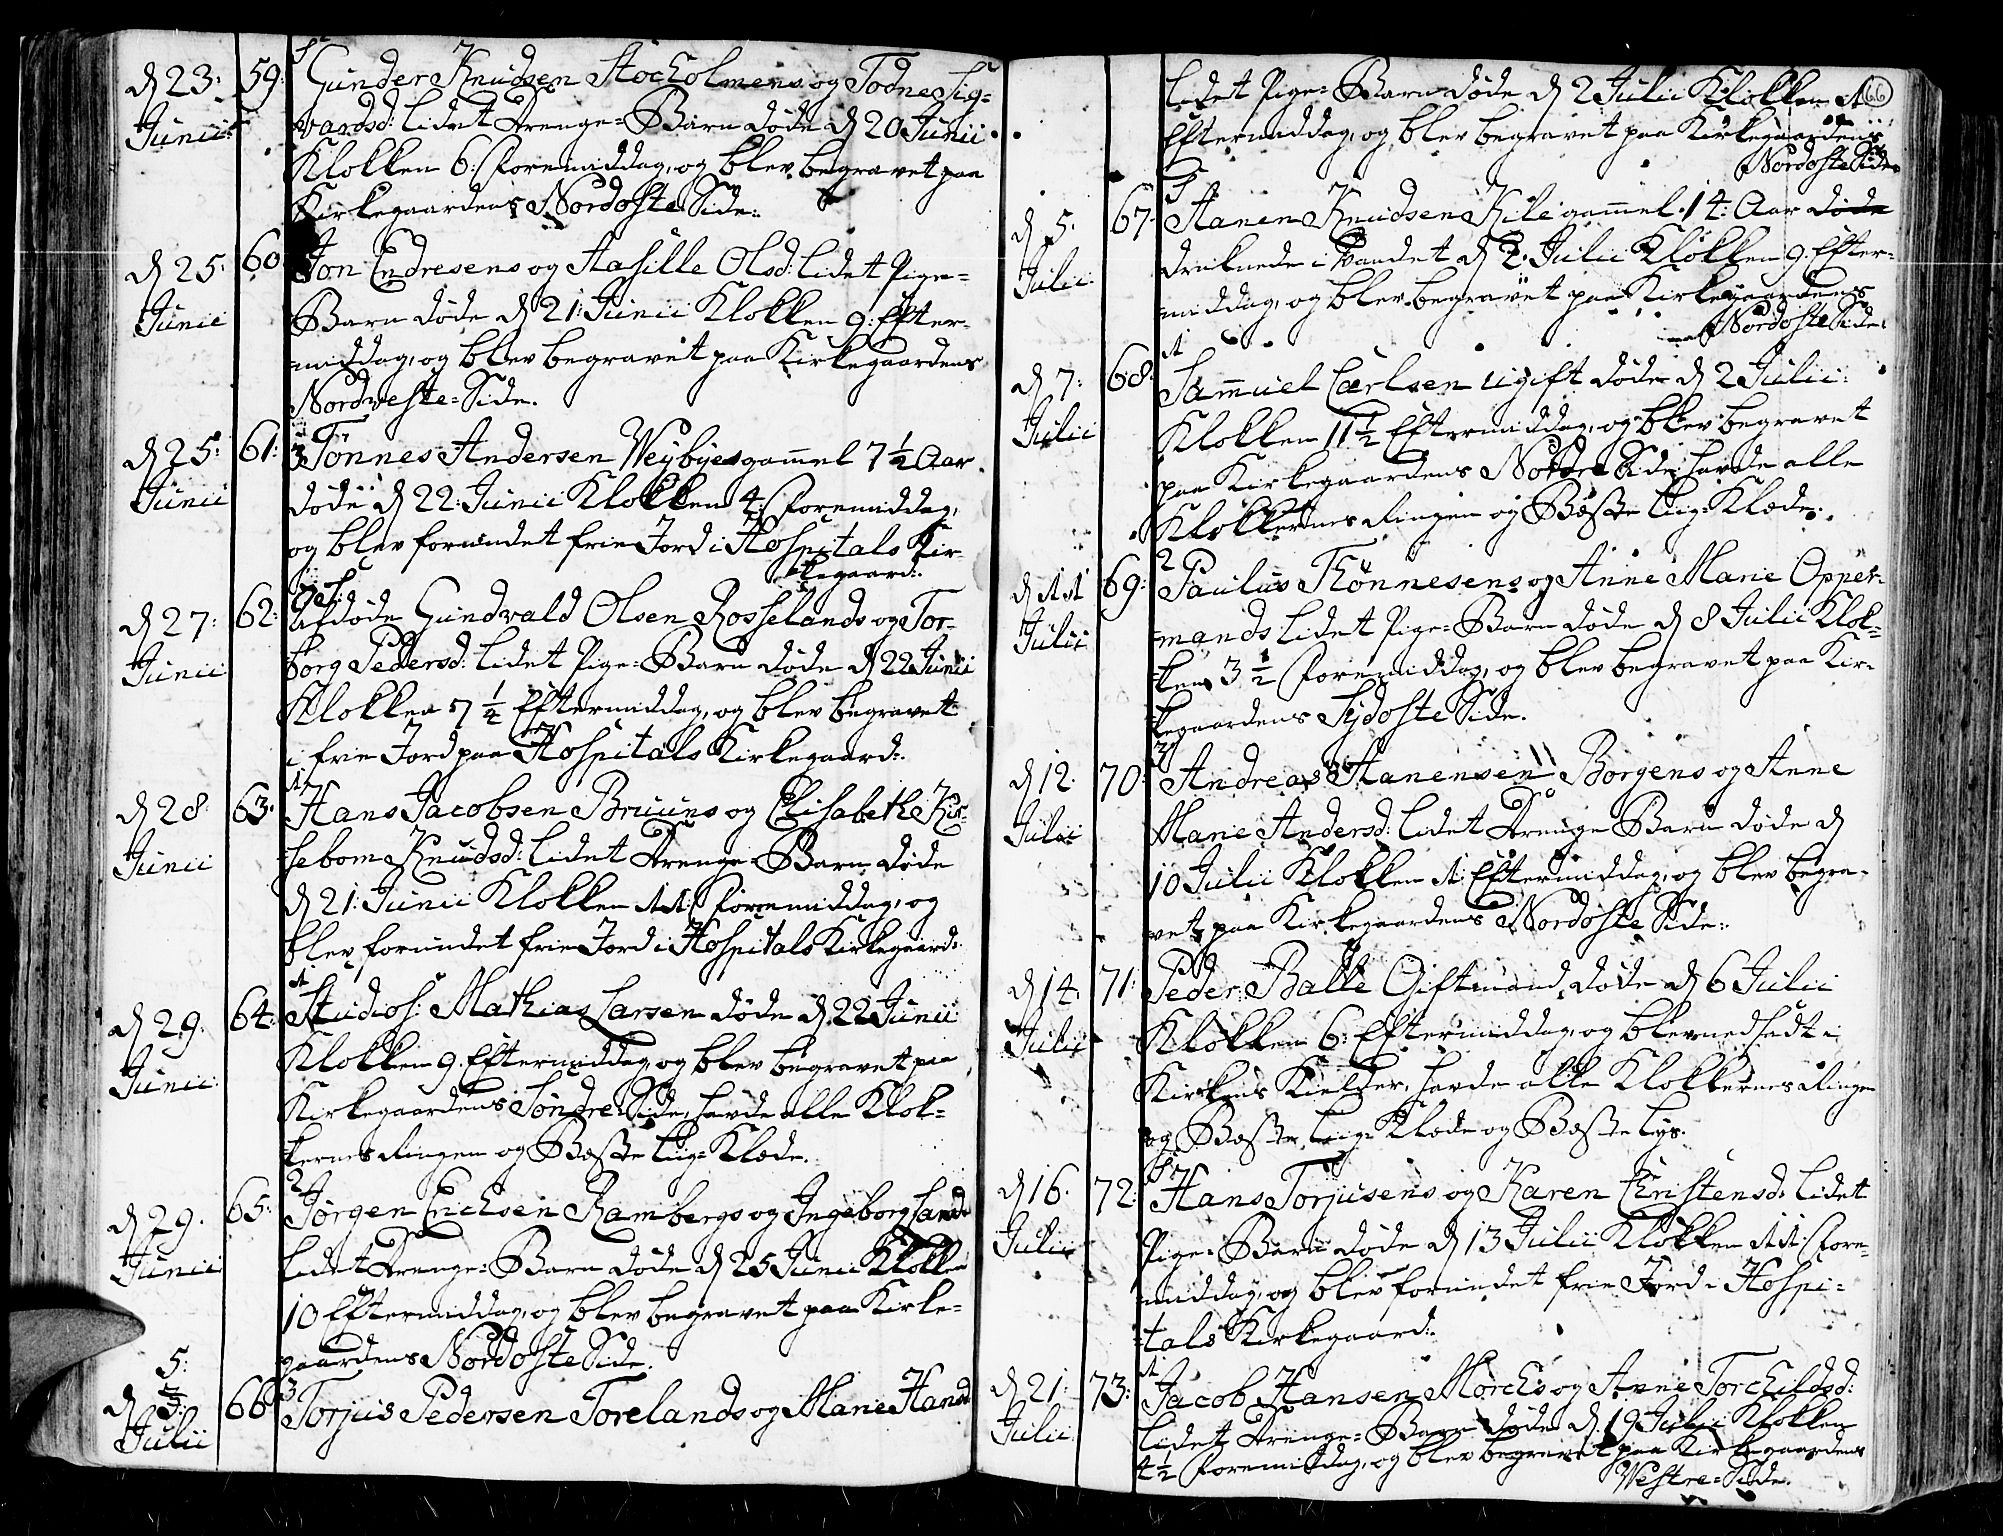 d 23: Junii 59: Gunder Knudsen Stocholmens og Todne Sig-
vardsd: lidet Drenge-Barn døde d 20 Junii
Klokken 6: Formiddag, og blev begravet paa
Kirkegaardens Nordoste Side:
d 25: Junii 60: Jon Endresens og Aasille Olsd: lidet Pige-
Barn døde d 21: Junii Klokken 9: Efter-
middag, og blev begravet paa Kirkegaardens
Nordveste-Side.
3
d 25: Junii 61: Tönnes Andersen Weybyes gammel 7½ Aar
døde d 22: Junii Klokken 4: Formiddag,
og blev forundet frie Jord i Hospitals Kir-
kegaard:
d 27: Junii 62: Afdøde Gundvald Olsen Rosselands og Tor-
borg Pedersd: lidet Pige-Barn døde d 22 Junii
Klokken 7½ Eftermiddag, og blev begravet
i frie Jord paa Hospitals Kirkegaard:
d 28: Junii 63: Hans Jacobsen Bruuns og Elisabeth Kir-
sebom Knudsd: lidet Drenge-Barn døde
d 21: Junii Klokken 11: Formiddag, og
blev forundet frie Jord i Hospitals Kirkegaard:
1
d 29: Junii 64: Studios: Mathias Larsen døde d 22 Junii
Klokken 9: Eftermiddag, og blev begravet paa
Kirkegaardens Søndre-Side, havde alle Klok-
kernes Ringen og Beste Liig-Klæde.
2
d 29: Junii 65: Jørgen Erichsen Rambergs og Ingeborg
lidet Drenge-Barn døde d 25 Junii Klokken
10 Eftermiddag, og blev begravet paa Kirke-
gaardens Nordoste Side.
5: 3
d 3: Julii 66 Torjus Pedersen Torelands og Marie Hansd
66
lidet Pige-Barn døde d 2 Julii Klokken 1
Eftermiddag, og blev begravet paa Kirkegaardens
Nordoste Side.
d 5: Julii 67: Hanen Knudsen Kile gammel 14: Aar døde
druknede i Vandet d 2. Julii Klokken 9. Efter-
middag, og blev begravet paa Kirkegaardens
Nordoste Side.
1
d 7: Julii 68: Sammuel Carlsen ugift døde d 2 Julii
Klokken 11½ Eftermiddag, og blev begravet
paa Kirkegaardens Nordre Side havde alle
Klokkernes Ringen og Beste Liig-Klæde.
2
d 11 Julii 69: Paulus Thönnesens og Anne Marie Opper-
mands lidet Pige-Barn døde d 8 Julii Klok-
ken 3½ Formiddag, og blev begravet paa Kir-
kegaardens Sydoste Side.
d 12. Julii 70: Andreas Hanensen Borgens og Anne
Marie Andersd: lidet Drenge Barn døde d
10 Julii Klokken 1: Eftermiddag, og blev begra-
vet paa Kirkegaardens Nordoste Side:
d 14. Julii 71: Peder Balle Giftmand døde d 6 Julii
Klokken 6: Eftermiddag, og blev nedsadt i
Kirkens Kielder, havde alle Klokkernes Ringen
og Beste Liig-Klæde og Beste Lys.
d 16. Julii 72: Hans Torjusens og Karen Christensd: lidet
Pige-Barn døde d 13 Julii Klokken 11: Fore-
middag, og blev forundet frie Jord i Hospi-
tals Kirkegaard:
1
d 21: Julii 73: Jacob Hansen Mørchs og Anne Torchildsd:
lidet Drenge-Barn døde d 19 Julii Klokken
4½ Formiddag, og blev begravet paa Kirkegaardens
Vestre-Side.